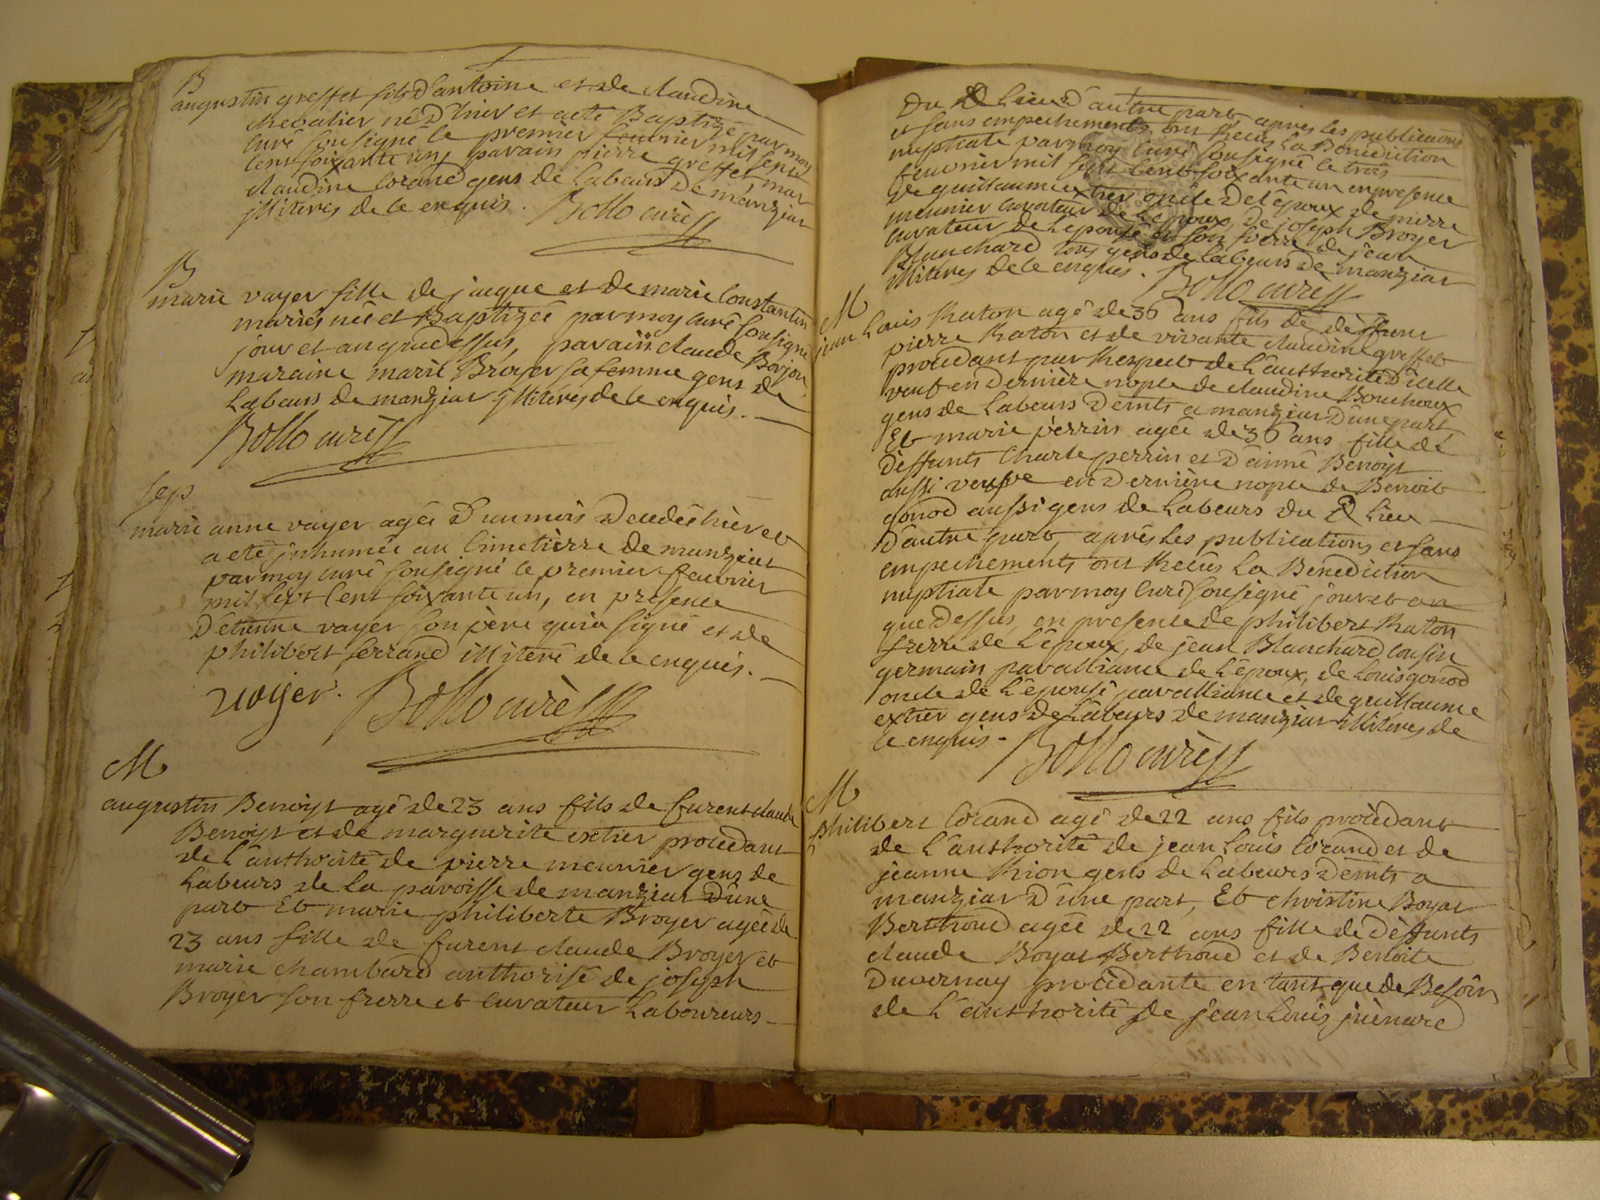 B
augustin greffet fils d'antoine et de claudine
chevalier né d'hier et a eté Baptizé par moy
curé sousigné le premier feuvrier mil sept
cent soixante un, parain pierre greffet mar
claudine Corand gens de Labeurs de manziat
jlliterés de ce enquis. Bollo curé
B
marie vayer fille de jacque et de marie Constantin
mariés née et Baptizée par moy curé sousigné
jour et an que dessus, parain claude Borjon
maraine marie Broyer sa femme gens de
Labeurs de manziat jlliterés de ce enquis.
Bollo curé
sep
marie anne vayer agée d'un mois decedée hier et
a eté jnhumée au cimetierre de manziat
par moy curé sousigné le premier feuvrier
mil sept cent soixante un, en presence
d'etienne vayer son père qui a signé et de
philibert ferrand illiteré de ce enquis.
voyer. Bollo curé
M
augustin Benoist agé de 23 ans fils de furent claude
Benoist et de marguerite extier procedant
de L'authorité de pierre meunier gens de
Labeurs de la paroisse de manziat d'une
part Et marie philiberte Broyer agée de
23 ans fille de furent claude Broyer et
marie chambard authorisé de joseph
Broyer son frerre et curateur Laboureurs
du d Lieu d'autre part apres les publications
et sans empechements ont recus La Benediction
nuptiale par moy curé sousigné le trois
feuvrier mil sept cent soixante un en presence
de guillaume extier oncle de L'epoux de pierre
meunier curateur de L'epoux, de joseph Broyer
curateur de L'epouse et son frerre de jean
Blanchard tous gens de labeurs de manziat
illiterés de ce enquis. Bollo curé
M
jean Louis Raton agé de 36 ans fils de deffunt
pierre Raton et de vivante claudine greffet
procedant par Respect de L'authorité d'icelle
veuf en derniere nopce de claudine Bouchoux
gens de Labeurs d'eints a manziat d'une part
Et marie perrin agée de 36 ans fille de
deffunts Charle perrin et d'aimé Benoist
aussi veufve en derniere nopce de Benoit
gonod aussi gens de Labeurs du d Lieu
d'autre part, aprés les publications et sans
empechements ont Recus La Benediction
nuptiale par moy curé sousigné jour et an
que dessus en presence de philibert Raton
frerre de L'epoux, de jean Blanchard cousin
germain par alliance de L'epoux, de Louis gonod
oncle de L'epouse par alliance et de guillaume
extier gens de Labeurs de manziat illiterés de
ce enquis. Bollo curé
M
Philibert Corand agé de 22 ans fils procedant
de L'authorité de jean Louis Corand et de
jeanne Rion gens de Labeurs d'eints a
manziat d'une part, Et christine Boyat
Berthoud agée de 22 ans fille de deffunts
claude Boyat Berthoud et de Benoite
Duvernay procedante en tant que de Besoin
de L'authorité de jean Louis juenard